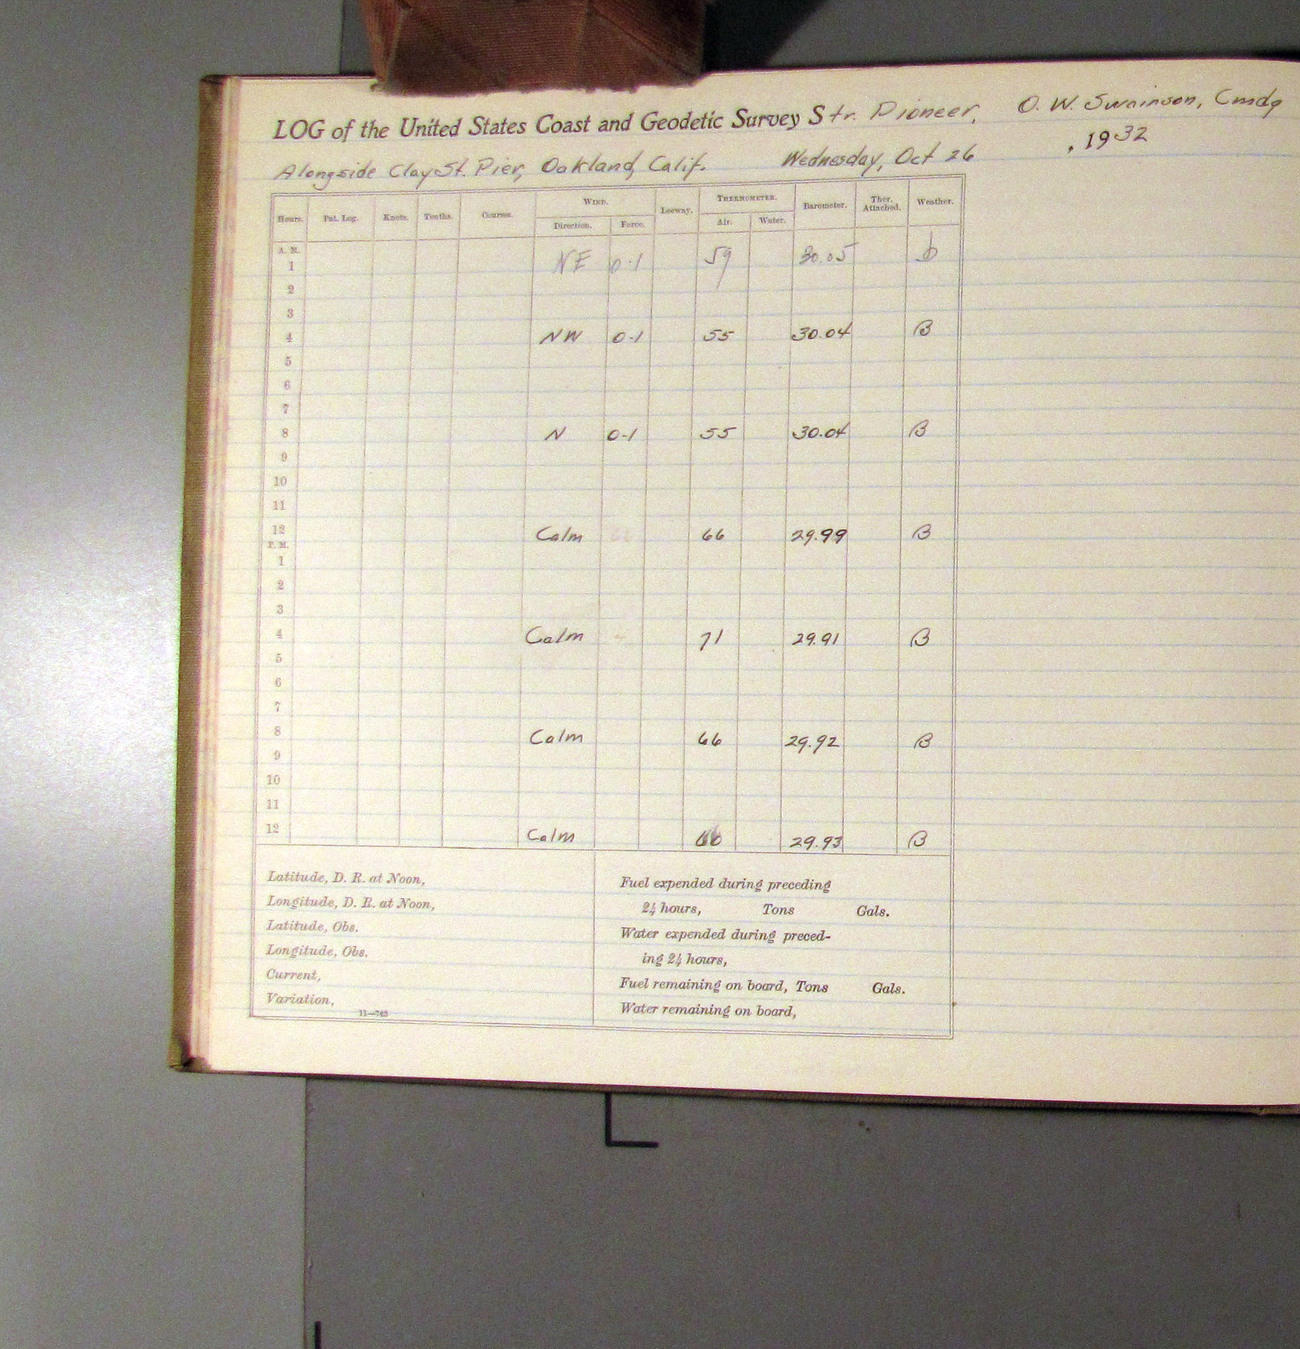 LOG of the United States Coast and Geodetic Survey Str. Pioneer, O. W. Swainson, Cmdg
Alongside Clay St. Pier, Oakland, Calif. Wednesday, Oct 26, 1932
Hours. Pat. Log. Knots. Tenths. Course. WIND. Leeway. THERMOMETER. Barometer. Ther. Attached. Weather.
Direction. Force. Air. Water.
A. M.
1 NE 0-1 59 30.05 b
2
3
4 NW 0-1 55 30.04 B
5
6
7
8 N 0-1 55 30.04 B
9
10
11
12 Calm 66 29.99 B
P. M.
1
2
3
4 Calm 71 29.91 B
5
6
7
8 Calm 66 29.92 B
9
10
11
12 Calm 29.93 B
Latitude, D. R. at Noon,
Longitude, D. R. at Noon,
Latitude, Obs.
Longitude, Obs.
Current,
Variation,
11—763
Fuel expended during preceding
24 hours, Tons Gals.
Water expended during preced-
ing 24 hours,
Fuel remaining on board, Tons Gals.
Water remaining on board,